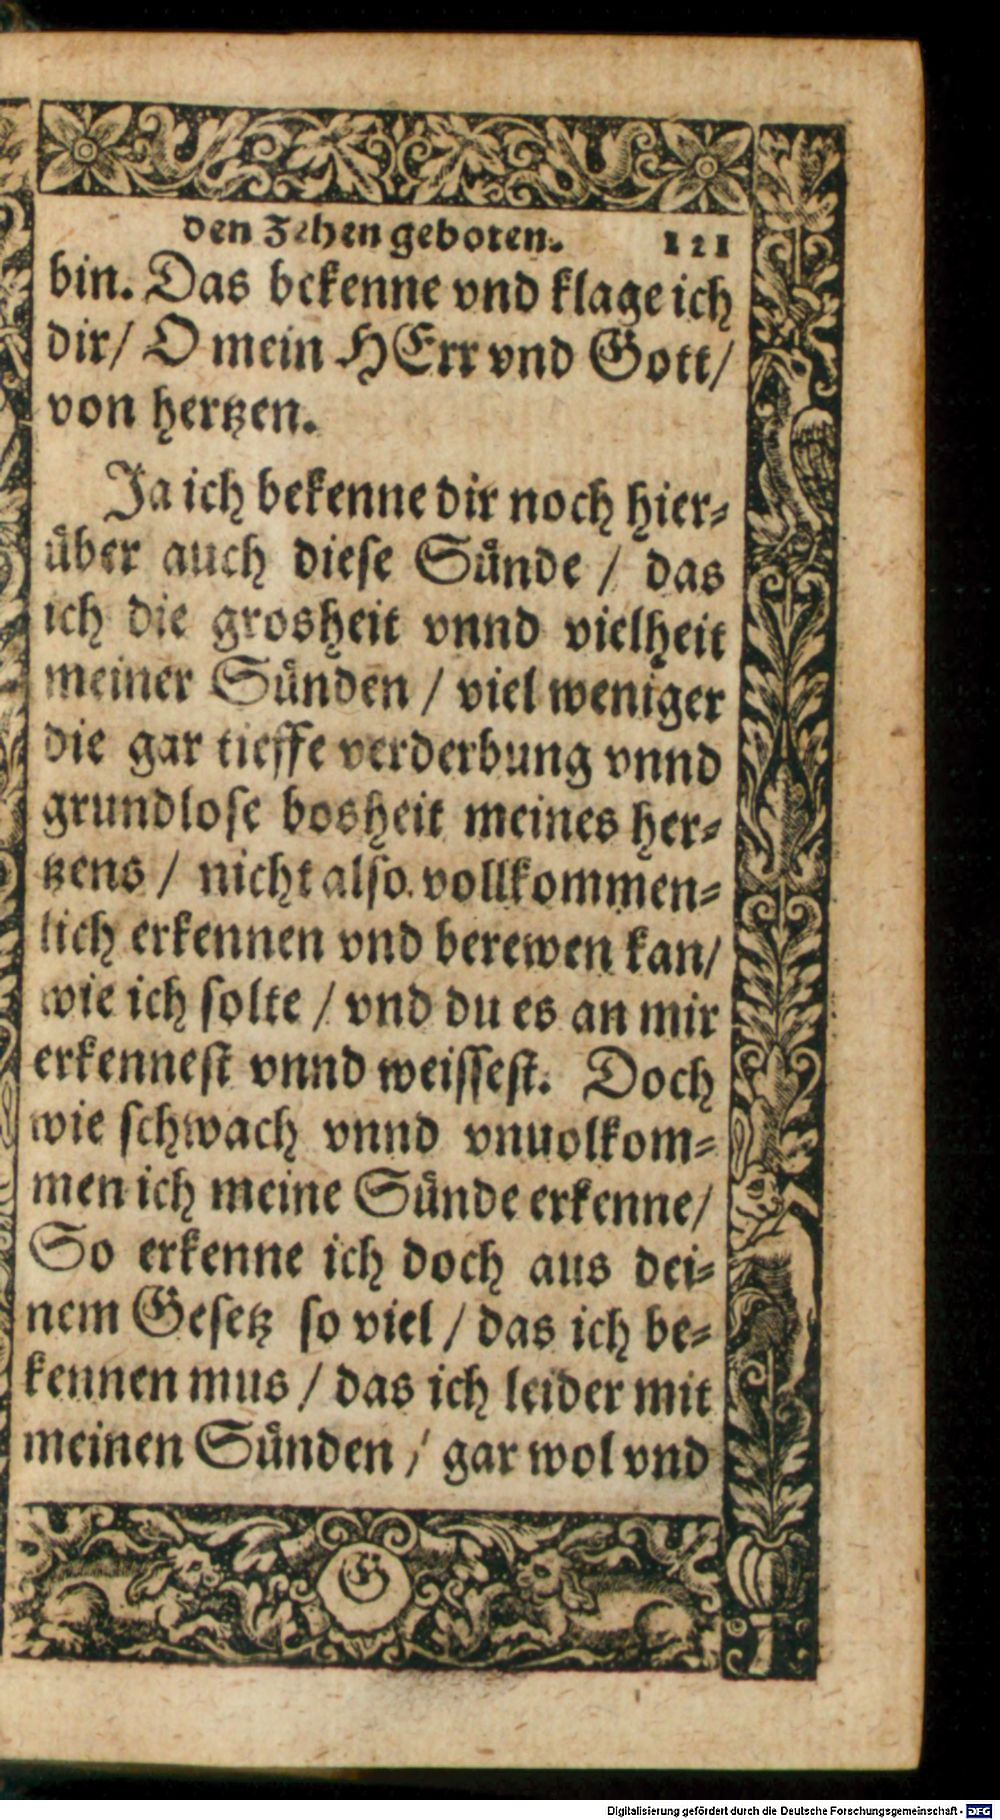 den Zehen geboten. 121
bin. Das bekenne vnd klage ich
dir/ O mein HErr vnd Gott/
von hertzen.
Ja ich bekenne dir noch hier⸗
über auch diese Sünde / das
ich die grosheit vnnd vielheit
meiner Sünden / viel weniger
die gar tieffe verderbung vnnd
grundlose bosheit meines her⸗
tzens / nicht also vollkommen⸗
lich erkennen vnd berewen kan/
wie ich solte / vnd du es an mir
erkennest vnnd weissest. Doch
wie schwach vnnd vnuolkom⸗
men ich meine Sünde erkenne/
So erkenne ich doch aus dei⸗
nem Gesetz so viel / das ich be⸗
kennen mus / das ich leider mit
meinen Sünden / gar wol vnd
G
Digitalisierung gefördert durch die Deutsche Forschungsgemeinschaft - DFG